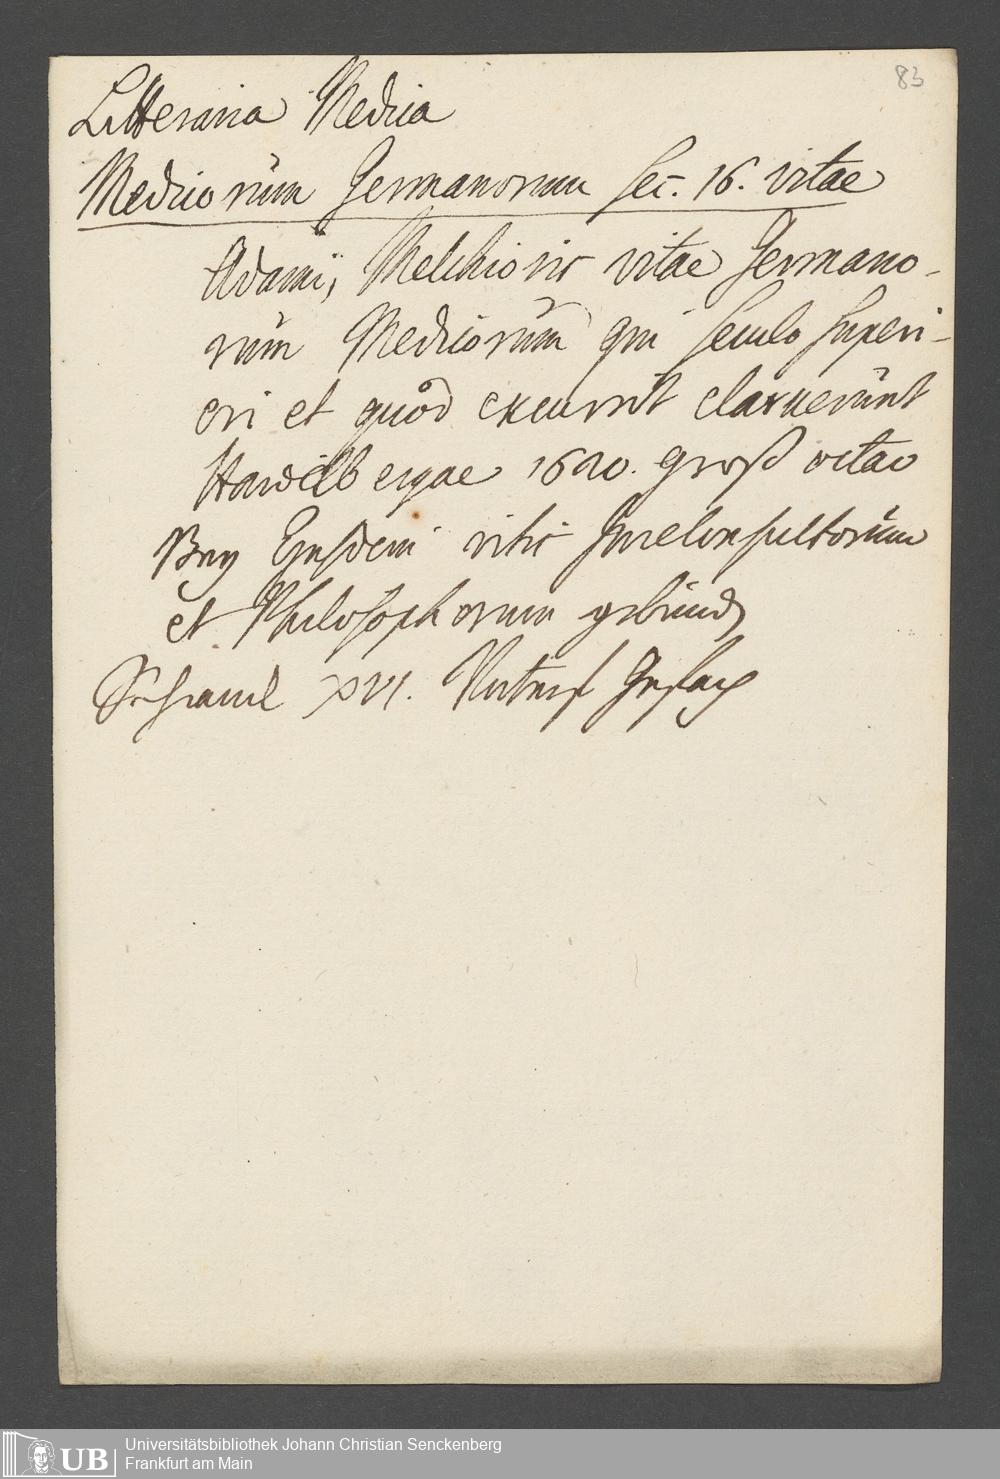 83
Litteraria Medica
Medicorum Germanorum Sec. 16. vitae
Adami, Melchioris vitae Germano-
rum Medicorum qui seculo superi-
ori et quod excurrit claruerunt
Haidelbergae 1620. groß octav
Bey Ejusdem vitis Jureconsultorum
et Philosophorum gebund
Schranck XVI. Unterst
Universitätsbibliothek Johann Christian Senckenberg
Frankfurt am Main
UB